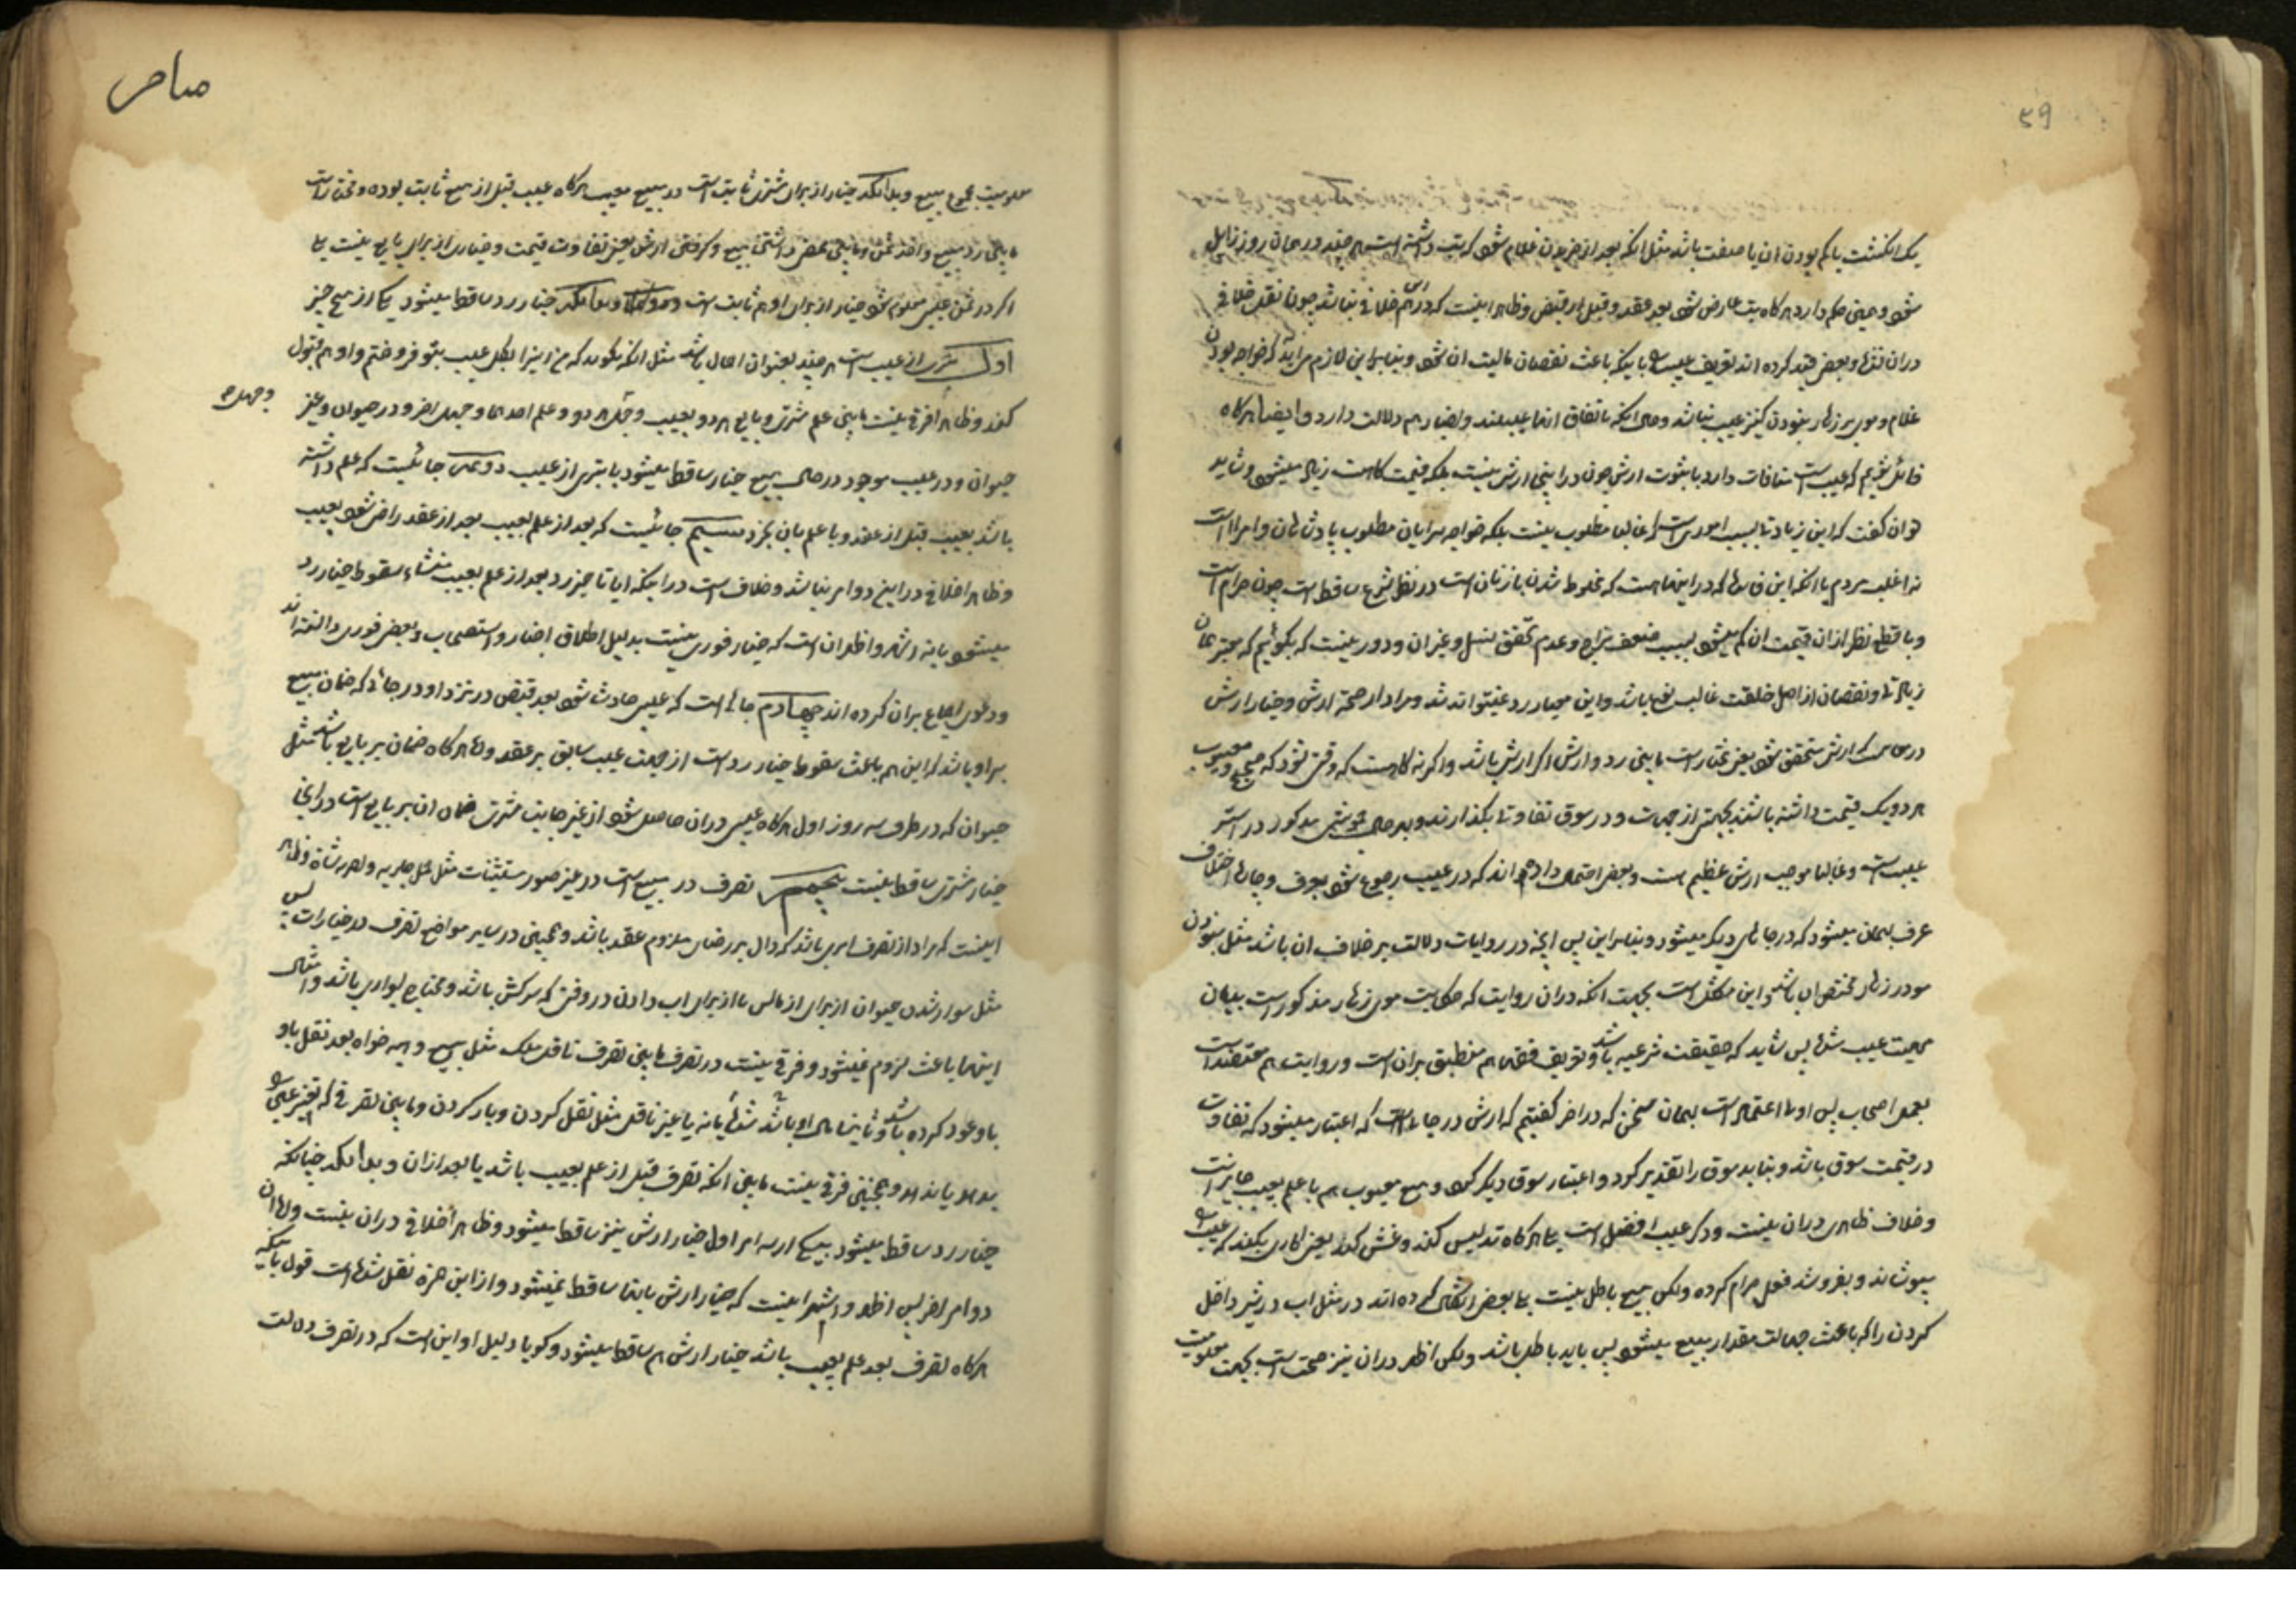 ۵۹
یک انکشت یا کم بودن ان یا صفت باشد مثل انکه بعد از خریدن غلام شود که تب داشته است هر چند در همان روز زایل
شود و همین حکم دارد هرکاه تب عارض شود بعد عقد و قبل از قبض و ظاهر اینست که در این هم خلافی نباشد چون نقل خلافی
دران و بعض قید کرده اند تعریف عیب را باینکه باعث نقصان مالیت ان شود و بنابراین لازم می اید که خواجه بودن
غلام و موی بر زهار نبودن کنیز عیب نباشد و حال انکه باتفاق انها عیبند و اخبار هم دلالت دارد و ایضا هرکاه
قائل شویم که عیب است منافات دارد با ثبوت ارش چون در اینجا ارش نیست بلکه قیمت کاهست زیاد میشود و شاید
توان کفت که این زیادتی بسبب امری است که غالبا مطلوب نیست بلکه خواجه سرایان مطلوب پادشاهان و امرا است
نه اغلب مردم با انکه این فایدها که در اینها هست که مخلوط شدن با زنان است در نظر شرع ساقط است چون حرام است
و با قطع نظر از ان قیمت ان کم میشود بسبب ضعف مزاج و عدم تحقق نسل و غیر ان و دور نیست که بکوئیم که معتبر همان
زیادتی و نقصان از اصل خلقت غالب نوع باشد و این معیار رد میتواند شد و مراد از صحة ارش و خیار ارش
در جائیست که ارش متحقق شود یعنی مختار است مابین رد و ارش اکر ارشی باشد و اکر نه کاهست که وقتی شود که صحیح و معیوب
هر دو یک قیمت داشته باشند بجهتی از جهات و در سوق تفاوت نکذارند و بهر حال مذکور در استر
عیب است و غالبا موجب ارش عظیم است و بعض احتمال داده اند که در عیب رجوع شود بعرف و جاهای اختلاف
عرف بهمان میشود که در جاهای دیکر میشود و بنابراین پس انچه در روایات دلالت بر خلاف ان باشد مثل نبودن
مو در زهار مختص ان باشد و این مشکل است بجهت انکه دران روایت که حکایت موی زهار مذکور است بیان
ماهیت عیب شده پس شاید که حقیقت شرعیه باشد و تعریف فقها هم منطبق بران است و روایت هم معتضد است
بعمل اصحاب پس اولی اعتماد است بهمان سخن که در اخر کفتیم که ارش در جائی است که اعتبار میشود که تفاوت
در قیمت سوق باشد و نباید سوق را تقدیر کرد و اعتبار سوق دیکر کرد و بیع معیوب هم با علم بعیب جایز است
و خلاف ظاهری دران نیست و ذکر عیب افضل است بلی هرکاه تدلیس کند و غش کند یعنی کاری بکند که عیب را
بپوشاند و بفروشد فعل حرام کرده ولکن بیع باطل نیست بلی بعض اشکال کرده اند در مثل اب در شیر داخل
کردن را که باعث جهالت مقدار مبیع میشود پس باید باطل باشد ولکن اظهر دران نیز صحت است بجهت معلومیت
معلومیت مجموع مبیع و بدانکه خیار از برای مشتری ثابت است در مبیع معیب هرکاه عیب قبل از بیع ثابت بوده و مختار است
مابین رد مبیع و اخذ ثمن و مابین عوض داشتن مبیع و کرفتن ارش یعنی تفاوت قیمت و خیاری از برای بایع نیست بلی
اکر در ثمن عیبی معلوم شود خیار از برای او هم ثابت است و بدانکه خیار رد ساقط میشود بیکی از پنج چیز
اول تبری از عیب است هر چند بعنوان اجمال باشد مثل انکه بکوید که من اینرا بکل عیب بتو فروختم و او هم قبول
کند و ظاهرا فرقی نیست مابین علم مشتری و بایع هر دو بعیب و جهل هر دو و علم احدهما و جهل اخر و در حیوان و غیر
و جهل
حیوان و در عیب موجود در حال بیع خیار ساقط میشود با تبری از عیب دوم جائیست که علم داشته
باشد بعیب قبل از عقد و با علم بان بخرد سیم جائیست که بعد از علم بعیب بعد از عقد راضی شود بعیب
و ظاهرا خلافی در این دو امر نباشد و خلاف است در اینکه ایا تاخیر رد بعد از علم بعیب منشاء سقوط خیار رد
میشود یا نه اشهر و اظهر ان است که خیار فوری نیست بدلیل اطلاق اخبار و استصحاب و بعض فوری دانسته اند
و دعوی اجماع بران کرده اند چهارم جائی است که عیبی حادث شود بعد قبض در نزد او در جائی که ضمان مبیع
بر او باشد که این هم باعث سقوط خیار رد است از جهت عیب سابق بر عقد ولی هرکاه ضمان بر بایع باشد مثل
حیوان که در ظرف سه روز اول هرکاه عیبی دران حاصل شود از غیر جانب مشتری ضمان ان بر بایع است در اینجا
خیار مشتری ساقط نیست پنجم تصرف در مبیع است در غیر صور مستثنیات مثل حمل جاریه و تصریه شاة و ظاهر
اینست که مراد از تصرف امری باشد که دال بر رضای بلزوم عقد باشد و همچنین در سایر مواضع تصرف در خیارات پس
مثل سوار شدن حیوان از برای ازمایش یا از برای اب دادن در وقتی که سرکش باشد و محتاج بسواری باشد و امثال
اینها باعث لزوم نمیشود و فرقی نیست در تصرف مابین تصرف ناقل ملک مثل بیع و هبه خواه بعد نقل باو
باو عود کرده باشد و ثانیا مال او باشد شده یا نه یا غیر ناقل مثل نقل کردن و بار کردن و مابین تصرفی که تغییر عین را
بدهد یا ندهد و همچنین فرقی نیست مابین انکه تصرف قبل از علم بعیب باشد یا بعد از ان و بدانکه چنانکه
خیار رد ساقط میشود بیکی از سه امر اول خیار ارش نیز ساقط میشود و ظاهرا خلافی دران نیست ولی ان
دو امر اخر پس اظهر و اشهر اینست که خیار ارش بانها ساقط نمیشود و از ابن حمزه نقل شده است قول باینکه
هرکاه تصرف بعد علم بعیب باشد خیار ارش هم ساقط میشود و کویا دلیل او این است که در تصرف دلالت